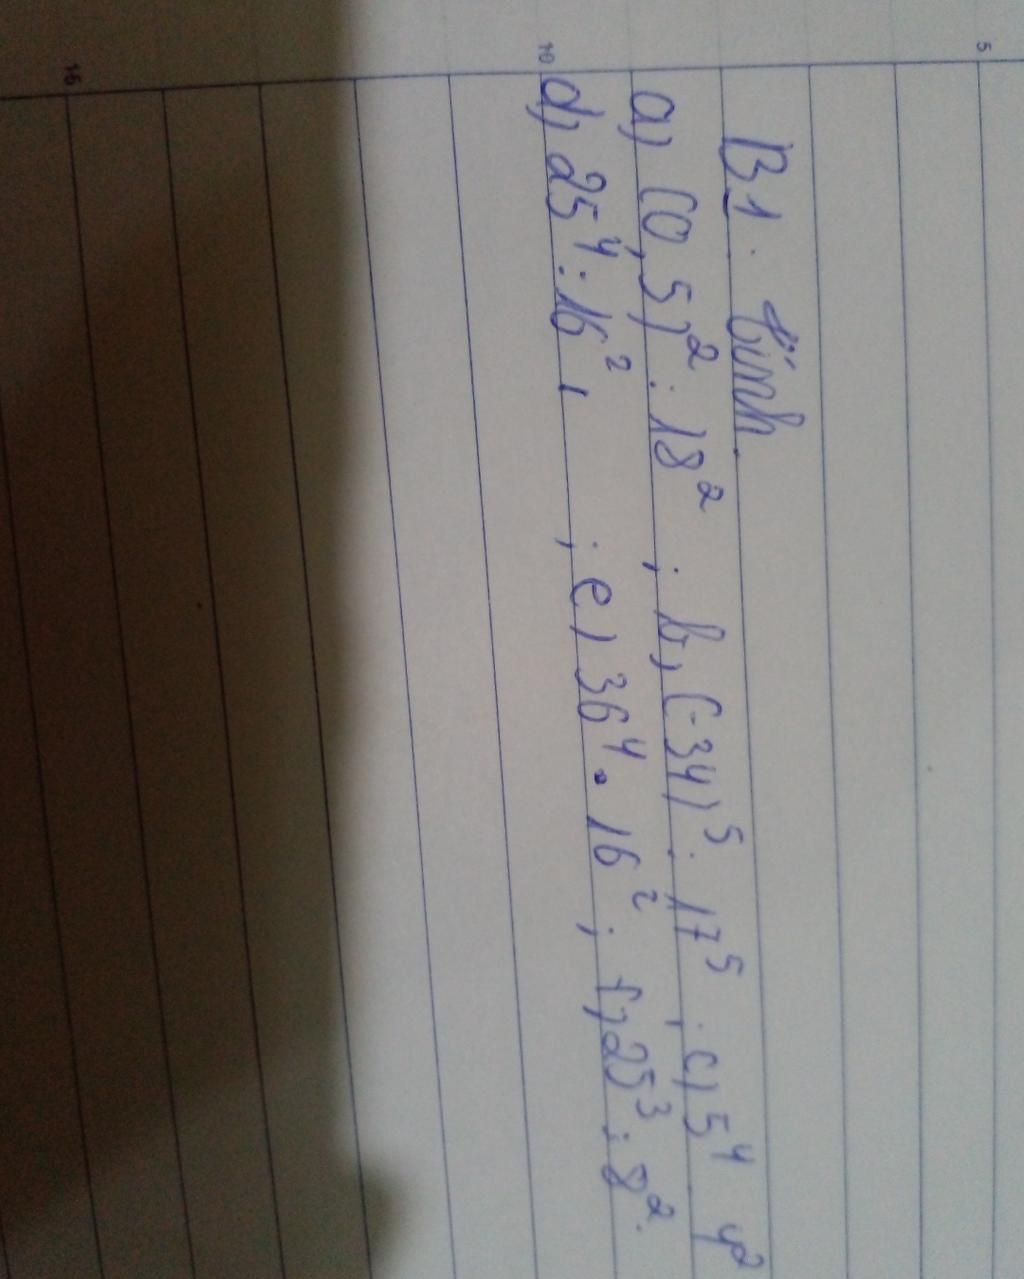 5
B1. tính.
a) (0,5)² : 18² ; b, (-34)⁵ . 17⁵ ; c) 5⁴ 4²
10 d) 25⁴ : 16² , ; e) 36⁴ . 16² ; f, 25³ : 8².
15